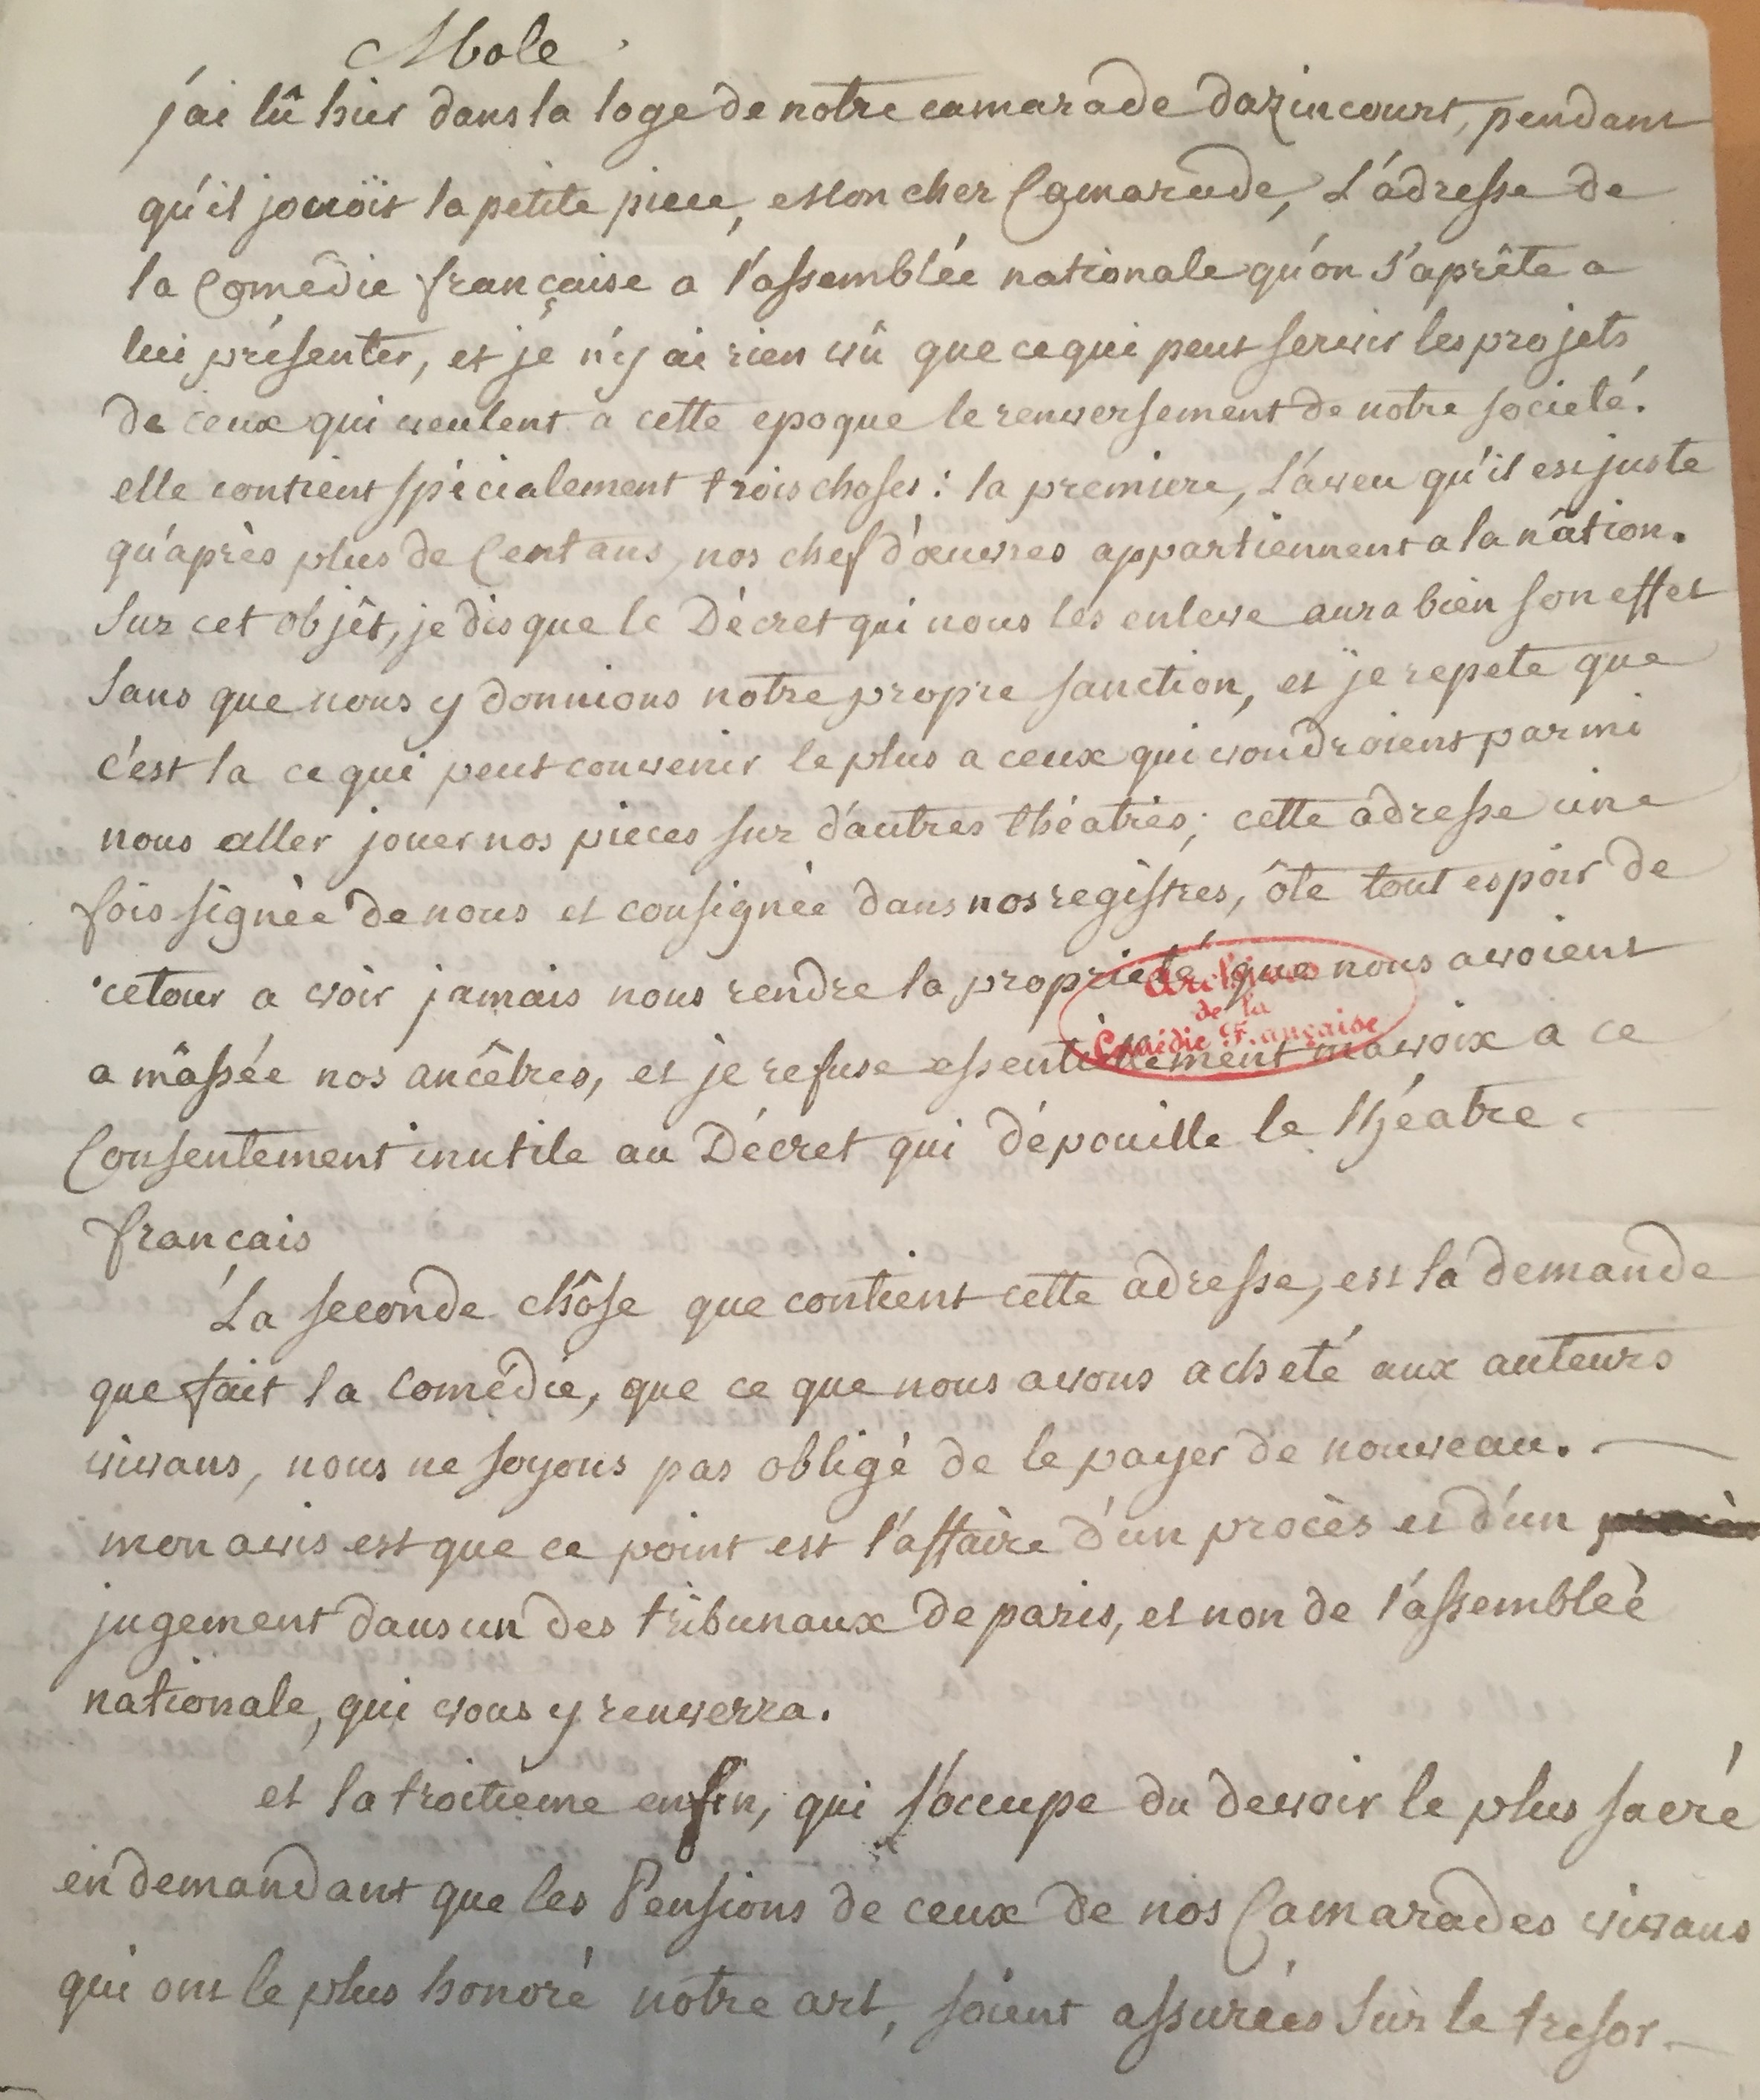 Mole
j'ai lû hier dans la loge de notre camarade dazincourt, pendant
qu'il jouoit la petite piece, Mon cher Camarade, L'adresse de
la Comédie française a l'assemblée nationale qu'on s'aprête a
lui présenter, et je n'y ai rien vû que ce qui peut servir les projets
de ceux qui veulent a cette epoque le renversement de notre societé.
elle contient spécialement trois choses : la premiere, L'aveu qu'il est juste
qu'après plus de Cent ans, nos chef d'œuvres appartiennent a la nation.
Sur cet objêt, je dis que le Décret qui nous les enleve aura bien son effet
Sans que nous y donnions notre propre sanction, et je repete que
c'est la ce qui peut convenir le plus a ceux qui voudroient parmi
nous aller jouer nos pieces sur d'autres théatres; cette adresse une
fois signée de nous et consignée dans nos registres, ôte tout espoir de
retour a voir jamais nous rendre la propriété que nous avoient
a mâssée nos ancêtres, et je refuse essentièlement ma voix a ce
Consentement inutile au Décret qui dépouille le théatre
francais
La seconde chôse que contient cette adresse, est la demande
que fait la Comédie, que ce que nous avons acheté aux auteurs
vivans, nous ne soyons pas obligé de le payer de nouveau.
mon avis est que ce point est l'affaire d'un procès et d'un procès
jugement dans un des tribunaux de paris, et non de l'assemblée
nationale, qui vous y renverra.
et la troitieme enfin, qui s'occupe du devoir le plus sacré
en demandant que les Pensions de ceux de nos Camarades vivans
qui ont le plus honoré notre art, soient assurées sur le tresor
Archives
de la
Comédie Française